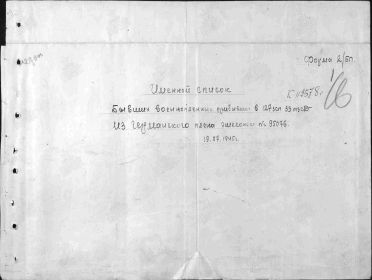 Форма 2/БП.
Именной список
Бывших военнопленных прибывших в 127 зсп 33
из Германского плена эшелоном № 95076.
19.07.1945г.